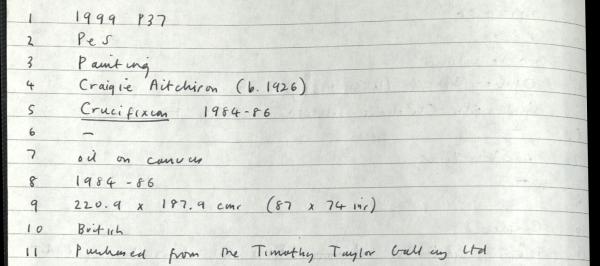 1 1999 P37
2 PeS
3 Painting
4 Craigie Aitchison (b. 1926)
5 Crucifixion 1984-86
6 —
7 oil on canvas
8 1984-86
9 220.9 x 187.9 cms (87 x 74 ins)
10 British
11 Purchased from the Timothy Taylor Gallery Ltd